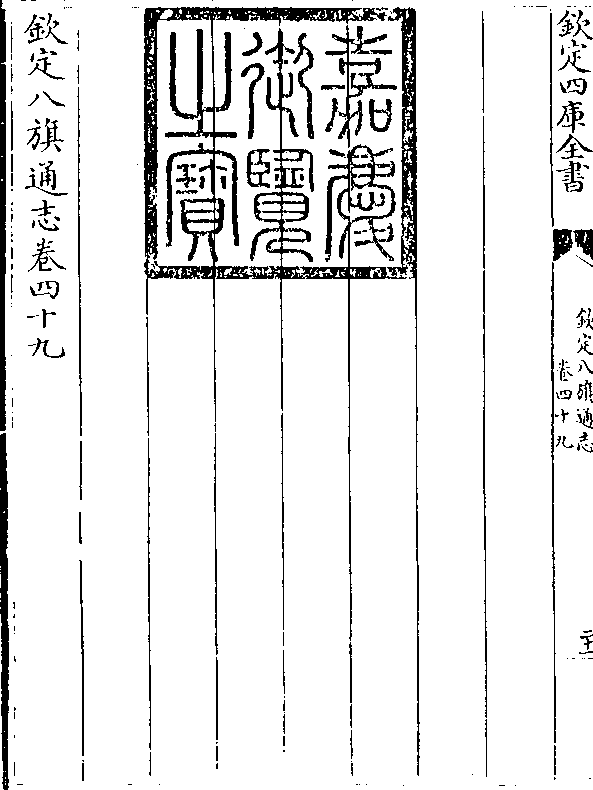 欽定四庫全書
欽定八旗通志
卷四十九
二十一
嘉慶
御覽
之寶
欽定八旗通志卷四十九